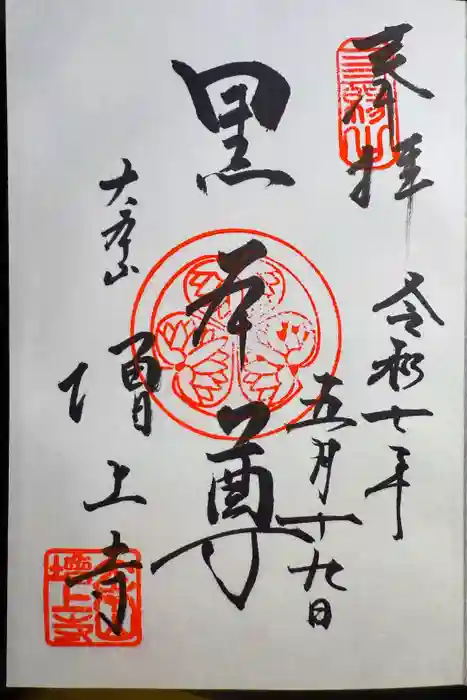 奉拝
令和七年
五月十九日
黒本尊
大本山
増上寺
三縁山